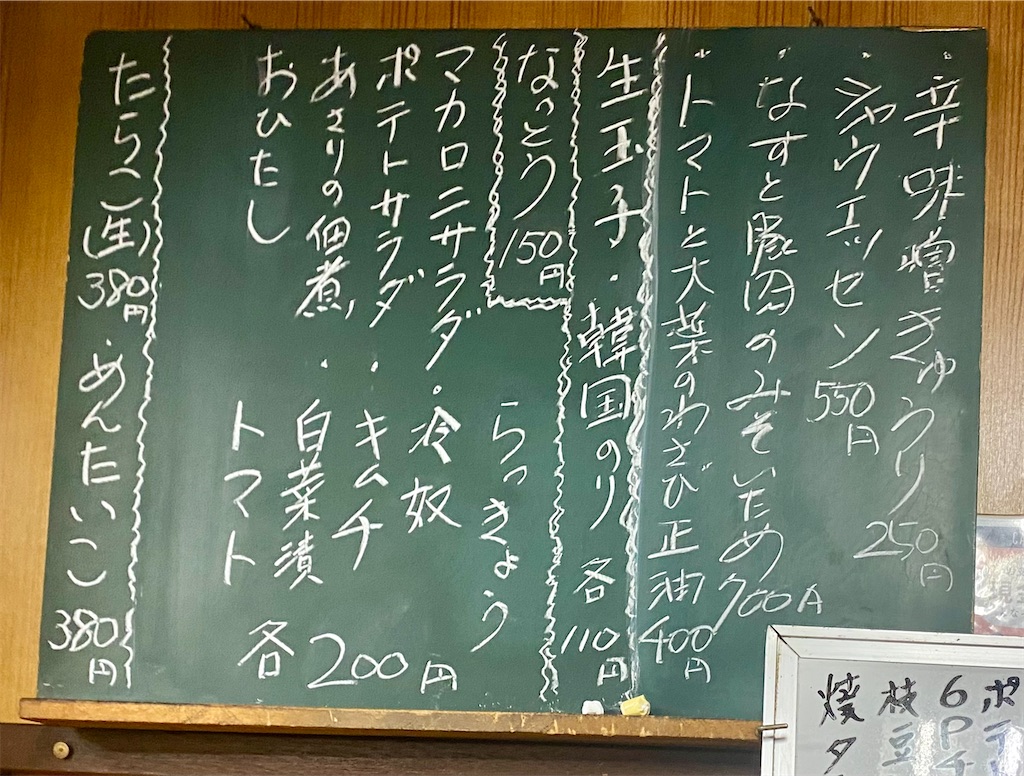 ・辛味噌きゅうり 250円
・シャウエッセン 550円
・なすと豚肉のみそいため 700円
・トマトと大葉のわさび正油 400円
生玉子・韓国のり 各110円
なっとう 150円
らっきょう
マカロニサラダ・冷奴
ポテトサラダ・キムチ
あさりの佃煮・白菜漬
おひたし トマト
各200円
たらこ(生) 380円・めんたいこ 380円
ポテ
6P
枝豆
焼タ